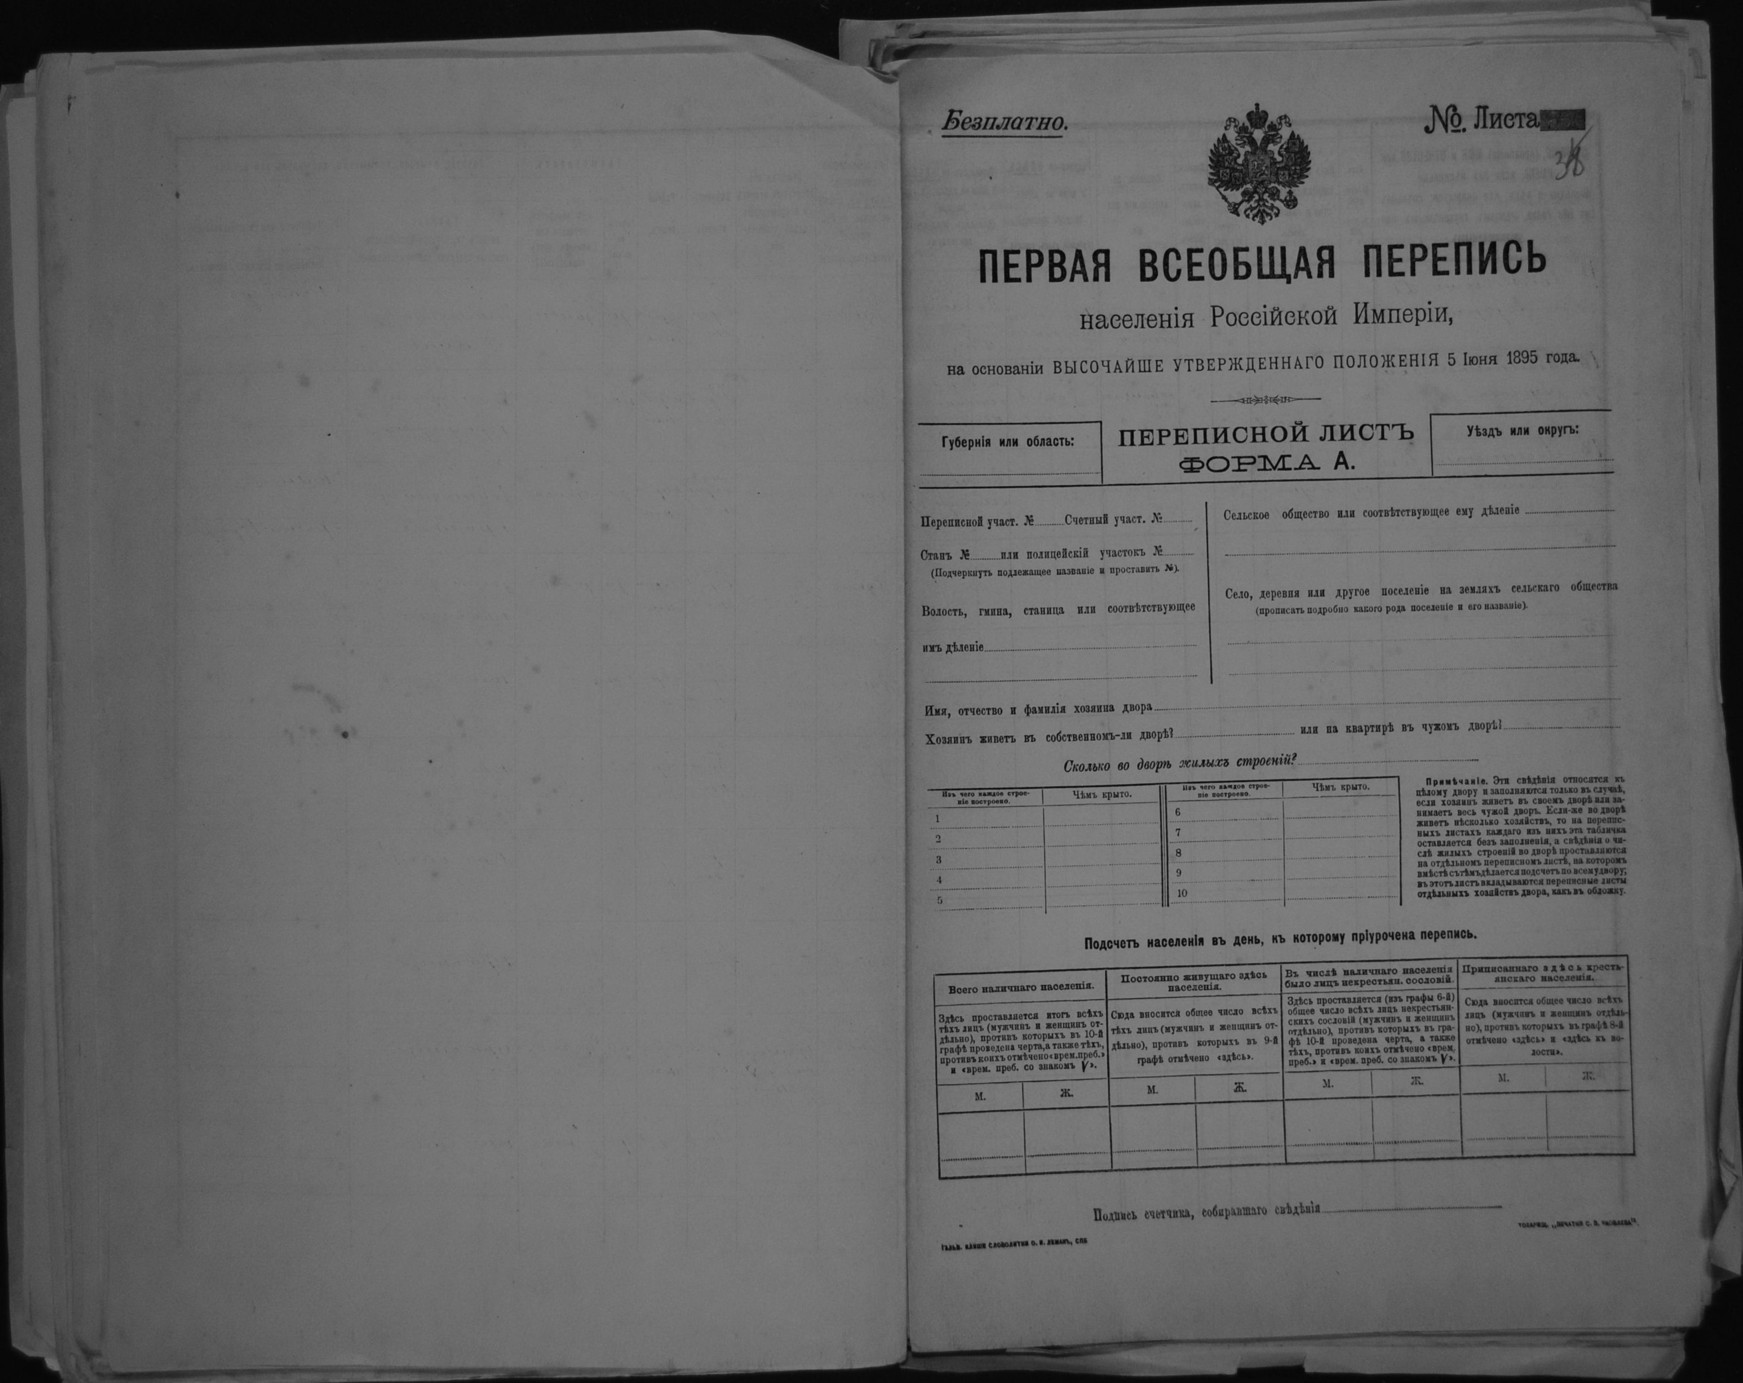 Безплатно.
№. Листа
38
ПЕРВАЯ ВСЕОБЩАЯ ПЕРЕПИСЬ
населенія Россійской Имперіи,
на основаніи ВЫСОЧАЙШЕ УТВЕРЖДЕННАГО ПОЛОЖЕНІЯ 5 Іюня 1895 года.
Губернія или область:
ПЕРЕПИСНОЙ ЛИСТЪ
ФОРМА А.
Уѣздъ или округъ:
Переписной участ. № Счетный участ. №
Станъ № или полицейскій участокъ №
(Подчеркнуть подлежащее названіе и проставить №).
Волость, гмина, станица или соотвѣтствующее
имъ дѣленіе
Сельское общество или соотвѣтствующее ему дѣленіе
Село, деревня или другое поселеніе на земляхъ сельскаго общества
(прописать подробно какого рода поселеніе и его названіе).
Имя, отчество и фамилія хозяина двора
Хозяинъ живетъ въ собственномъ-ли дворѣ? или на квартирѣ въ чужомъ дворѣ?
Сколько во дворѣ жилыхъ строеній?
Изъ чего каждое строе-
ніе построено.
Чѣмъ крыто.
1
2
3
4
5
Изъ чего каждое строе-
ніе построено.
Чѣмъ крыто.
6
7
8
9
10
Примѣчаніе. Эти свѣдѣнія относятся къ
цѣлому двору и заполняются только въ случаѣ,
если хозяинъ живетъ въ своемъ дворѣ или за-
нимаетъ весь чужой дворъ. Если-же во дворѣ
живетъ нѣсколько хозяйствъ, то на перепис-
ныхъ листахъ каждаго изъ нихъ эта табличка
оставляется безъ заполненія, а свѣдѣнія о чи-
слѣ жилыхъ строеній во дворѣ проставляются
на отдѣльномъ переписномъ листѣ, на которомъ
вмѣстѣ съ тѣмъ дѣлается подсчетъ по всему двору;
въ этотъ листъ вкладываются переписные листы
отдѣльныхъ хозяйствъ двора, какъ въ обложку.
Подсчетъ населенія въ день, къ которому пріурочена перепись.
Всего наличнаго населенія.
Здѣсь проставляется итогъ всѣхъ
тѣхъ лицъ (мужчинъ и женщинъ от-
дѣльно), противъ которыхъ въ 10-й
графѣ проведена черта, а также тѣхъ,
противъ коихъ отмѣчено «врем. преб.»
и «врем. преб. со знакомъ V».
М. Ж.
Постоянно живущаго здѣсь
населенія.
Сюда вносится общее число всѣхъ
тѣхъ лицъ (мужчинъ и женщинъ от-
дѣльно), противъ которыхъ въ 9-й
графѣ отмѣчено «здѣсь».
М. Ж.
Въ числѣ наличнаго населенія
было лицъ некрестьян. сословій.
Здѣсь проставляется (изъ графы 6-й)
общее число всѣхъ лицъ некрестьян-
скихъ сословій (мужчинъ и женщинъ
отдѣльно), противъ которыхъ въ гра-
фѣ 10-й проведена черта, а также
тѣхъ, противъ коихъ отмѣчено «врем.
преб.» и «врем. преб. со знакомъ V».
М. Ж.
Приписаннаго здѣсь кресть-
янскаго населенія.
Сюда вносится общее число всѣхъ
лицъ (мужчинъ и женщинъ отдѣль-
но), противъ которыхъ въ графѣ 8-й
отмѣчено «здѣсь» и «здѣсь въ во-
лости».
М. Ж.
Подпись счетчика, собиравшаго свѣдѣнія
Гальв. клише словолитни О. И. Леманъ, СПБ
Товарищ. „Печатня С. П. Яковлева“.